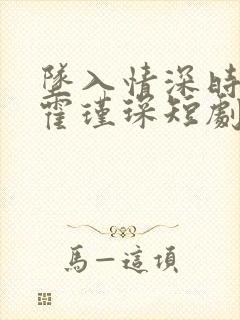 墜入情深時
霍瑾琛短劇
馬一這項